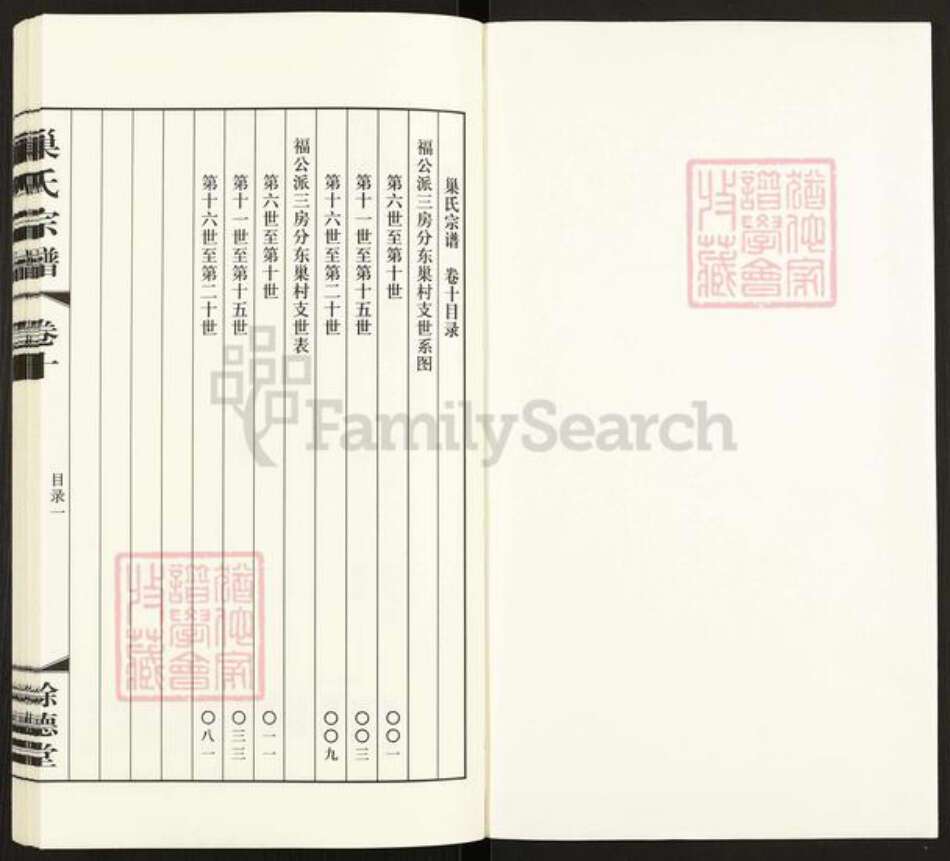 巢氏宗谱 卷十目录
福公派三房分东巢村支世系图
第六世至第十世 〇〇一
第十一世至第十五世 〇〇三
第十六世至第二十世 〇〇九
福公派三房分东巢村支世表
第六世至第十世 〇一一
第十一世至第十五世 〇三三
第十六世至第二十世 〇八一
巢氏宗譜
卷十
目录一
馀德堂
譜學會
收藏
譜學會
收藏
FamilySearch